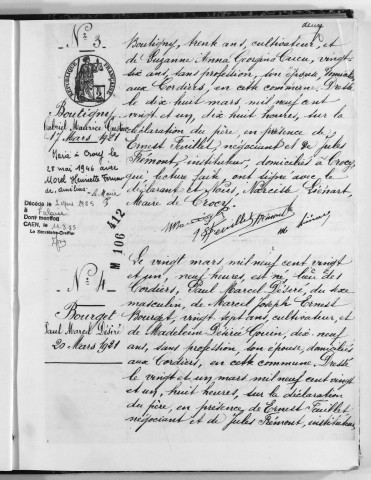 deux
N° 3
RÉPUBLIQUE FRANÇAISE
Boutigny
Gabriel Maurice Gustave
17 Mars 1921
Marié à Crocy le
28 mai 1946 avec
Morel Henriette
le Maire
Décédé le 2 1985
à Falaise
Dont mention
CAEN, le
Le Secrétaire-Greffier
M 106412
Boutigny, trente ans, cultivateur, et
de Suzanne Anna Georgina Cucu, vingt-
six ans, sans profession, son épouse, domiciliés
aux Cordiers, en cette commune. Dressé
le dix huit mars mil neuf cent
vingt et un, dix huit heures, sur la
déclaration du père, en présence de
Ernest Feuillet, négociant et de Jules
Frémont, instituteur, domiciliés à Crocy,
qui, lecture faite, ont signé avec le
déclarant et Nous, Narcisse Liénart
Maire de Crocy.
E Feuillet J Frémont
N° 4
Bourget
Paul Marcel Désiré
20 Mars 1921
Le vingt mars mil neuf cent vingt
et un, neuf heures, est né, lieu des
Cordiers, Paul Marcel Désiré, du sexe
masculin, de Marcel Joseph Ernest
Bourget, vingt sept ans, cultivateur, et
de Madeleine Désirée Couin, dix neuf
ans, sans profession, son épouse, domiciliés
aux Cordiers, en cette commune. Dressé
le vingt et un mars mil neuf cent vingt
et un, huit heures, sur la déclaration
du père, en présence de Ernest Feuillet
négociant et de Jules Frémont, instituteur